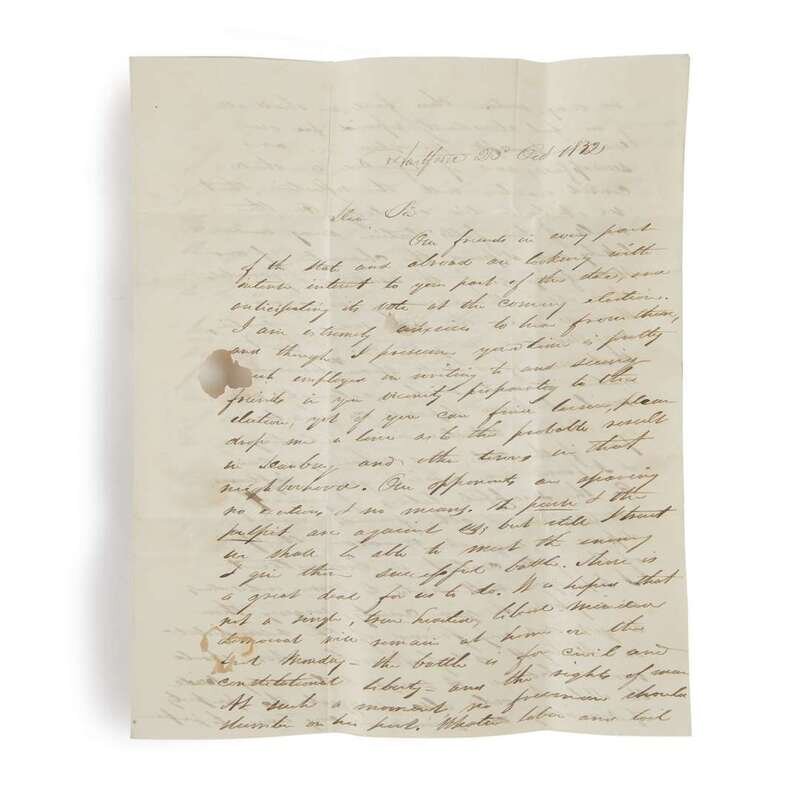 Hartford 23d Oct 1832
Dear Sir
Our friends in every part
of the state and abroad are looking with
intense interest to your part of the state, and
anticipating its vote at the coming election.
I am extremely anxious to hear from there,
and though I presume your time is pretty
much employed in writing to and seeing
friends in your vicinity preparatory to the
election, yet if you can find leisure, please
drop me a line as to the probable result
in Danbury and other towns in that
neighborhood. Our opponents are sparing
no exertions & no means. The purse & the
pulpit are against us, but still I trust
we shall be able to meet the enemy
& give them successful battle. There is
a great deal for us to do. It is hoped that
not a single, true hearted, liberal minded
democrat will remain at home on the
Monday - the battle is for civil and
constitutional liberty - and the rights of man
At such a moment no freeman should
slumber on his post. Whatever labor and toil